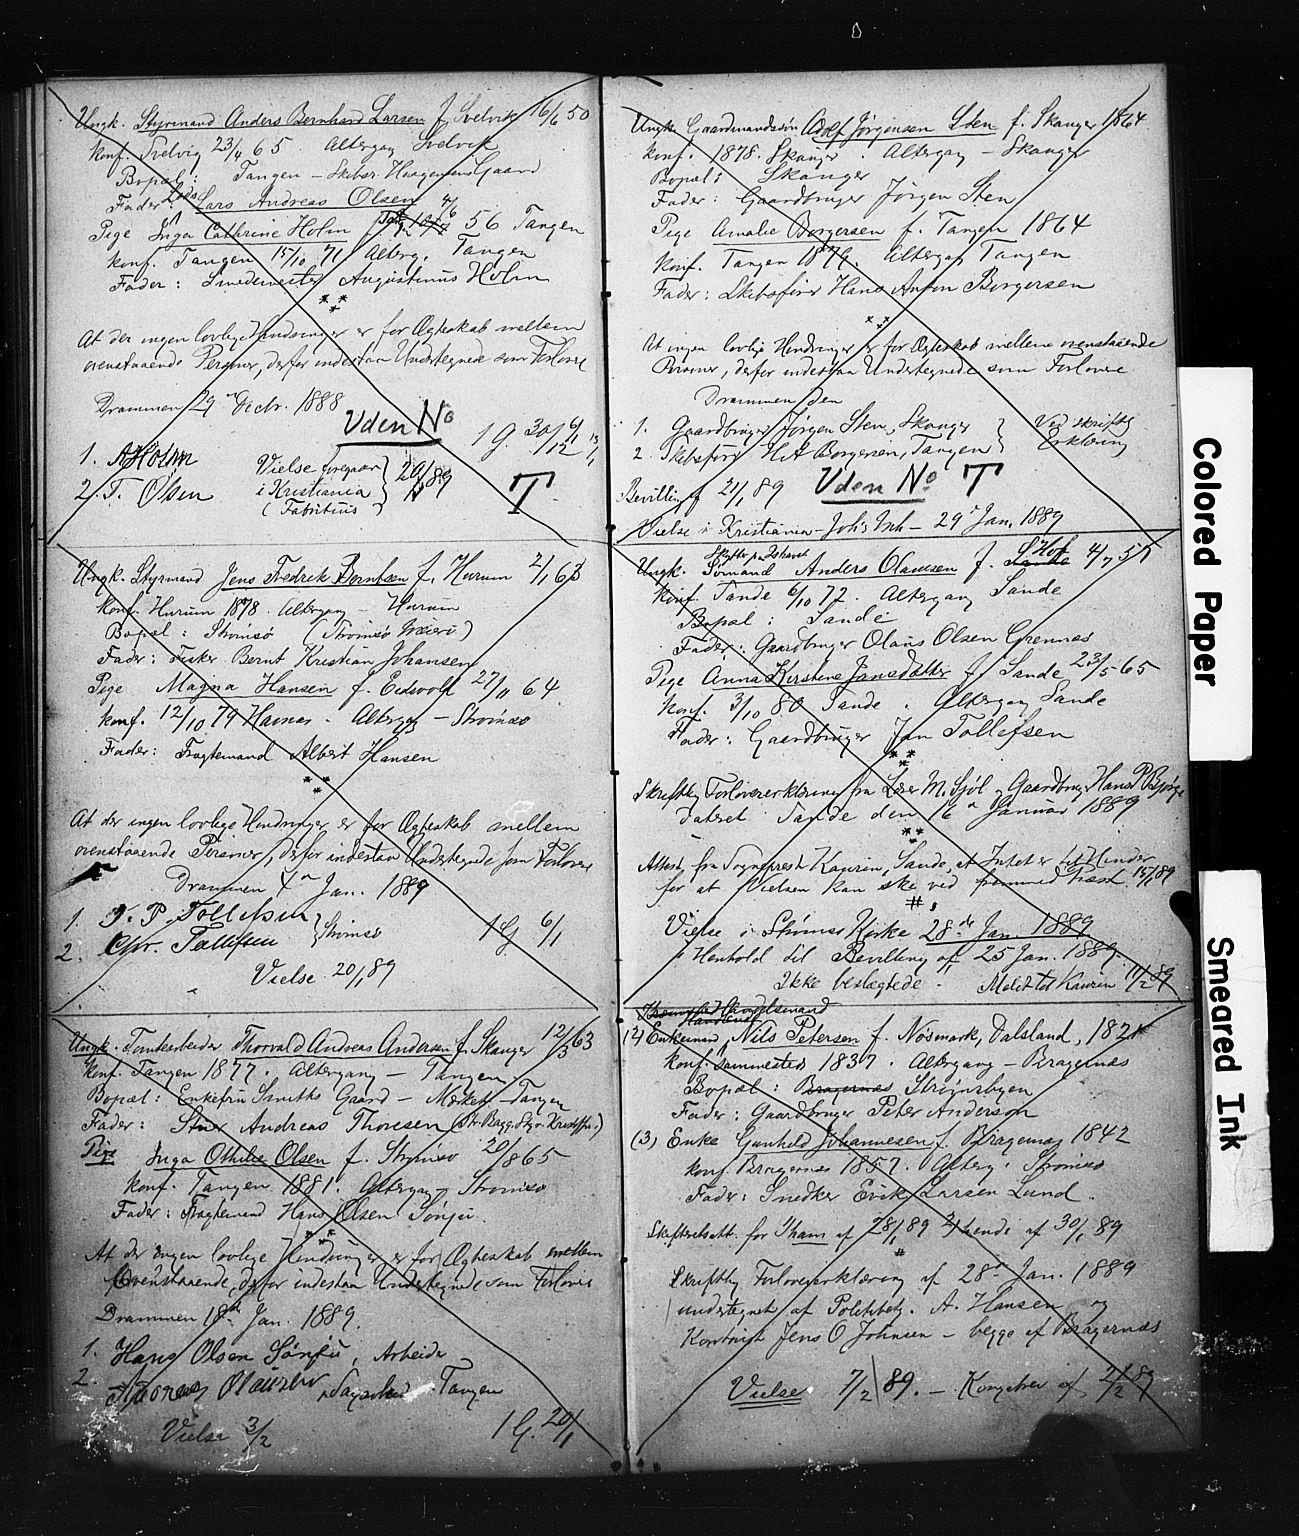 Ungk. Styrmand Anders Bernhard Larsen f. Svelvik 16/6 50
Konf. Svelvig 23/4 65. Altergang Svelvik
Bopæl: Tangen - Skibsr. Haagensens Gaard
Fader: Lods Lars Andreas Olsen
Pige Inga Cathrine Holm 4/6 56 Tangen
Konf. Tangen 15/10 71 Alterg. Tangen
Fader: Smedemester Augustinus Holm
At der ingen lovlige Hindringer er for Ægteskab mellem
ovenstaaende Personer, derfor indestaa Undertegnede som Forlovere
Drammen 29 Decbr. 1888
Uden No
1 G. 30/12
1. A Holm
2. T. Olsen
Vielse foregaar
i Kristiania
(Fabritius)
20/1 89
T
Ungk. Styrmand Jens Fredrik Berntsen f. Hurum 2/1 63
Konf. Hurum 1878. Altergang - Hurum
Bopæl: Strømsø (Strømsø Meieri)
Fader: Fisker Bernt Kristian Johansen
Pige Magna Hansen f. Eidsvold 27/11 64
Konf. 12/10 79 Altergg - Strømsø
Fader: Fragtemand Albert Hansen
At der ingen lovlige Hindringer er for Ægteskab mellem
ovenstaaende Personer, derfor indestaa Undertegnede som Forlovere
Drammen 4 Jan. 1889
1. P. Tollefsen
2. Chr. Tollefsen
Strømsø
1 G. 6/1
Vielse 20/1 89
Ungk. Tomtearbeider Thorvald Andreas Andersen f. Skanger 12/3 63
Konf. Tangen 1877. Altergang - Tangen
Bopæl: Enkefru Smiths Gaard - Tangen
Fader: Andreas Thoresen
Pige Inga Othilie Olsen f. Strømsø 20/8 65
Konf. Tangen 1881. Altergang - Strømsø
Fader: Fragtemand Hans Olsen Sønju
At der ingen lovlige Hindringer er for Ægteskab mellem
Ovenstaaende, derfor indestaa Undertegnede som Forlovere
Drammen 18de Jan. 1889.
1. Hans Olsen Sønju, Arbeider
2. Andreas Olausen, Tangen
Vielse 3/2
1 G. 20/1
Ungk. Gaardmandssøn Adolf Jørgensen Sten f. Skanger 1864
Konf. 1878. Skanger. Altergang - Skanger
Bopæl: Skanger
Fader: Gaardbruger Jørgen Sten
Pige Amalie Borgersen f. Tangen 1864
Konf. Tangen 1879. Altergang Tangen
Fader: Skibsfører Hans Anton Borgersen
At ingen lovlige Hindringer er for Ægteskab mellem ovenstaaende
Personer, derfor indestaa Undertegnede som Forlovere
Drammen den
1. Gaardbruger Jørgen Sten, Skanger
2. Skibsfører H. A. Borgersen, Tangen
Ved skriftlig
Erklæring
Bevilling af 21/1 89
Uden No T
Vielse i Kristiania - Joh's Kirk - 29 Jan. 1889
Ungk. Sømand Anders Olausen f. Hof 4/7 51
Konf. Sande 6/10 72. Altergang Sande
Bopæl: Sande
Fader: Gaardbruger Olaus Olsen Grennes
Pige Anna Kirstine Jansdatter f. Sande 23/5 65
Konf. 3/10 80 Sande. Altergang Sande
Fader: Gaardbruger Jan Tollefsen
Skriftlig Forlovererklæring fra M. Sjøl og Gaardbruger Hans P
dateret Sande den 16 Januar 1889
Attest fra Sogneprest Kaurin, Sande, at Intet er til Hinder
for at Vielsen kan ske ved fremmed Præst. 15/1 89
Vielse i Strømsø Kirke 28de Jan. 1889
i Henhold til Bevilling af 25 Jan. 1889.
Ikke beslægtede. Meldt til Kaurin 11/2 89
Handelsmand
(2) Enkemand Nils Petersen f. Nøsmark, Dalsland, 1821
Konf. sammesteds 1837. Altergang - Bragernæs
Bopæl: Bragernæs Strømsbyen
Fader: Gaardbruger Peter Anderson
(3) Enke Gunhild Johannesen f. Bragernæs 1842
Konf. Bragernæs 1857. Alterg. Strømsø
Fader: Snedker Erik Larsen Lund.
Skifteretsatt. for Ham af 28/1 89 Hende af 30/1 89
Skriftlig Forlovererklæring af 28 Jan. 1889
undertegnet af Politibetj. A. Hansen og
Jens O Johnsen - begge af Bragernæs
Vielse 7/2 89. - Kongebrev af 2/2 89
Colored Paper
Smeared Ink